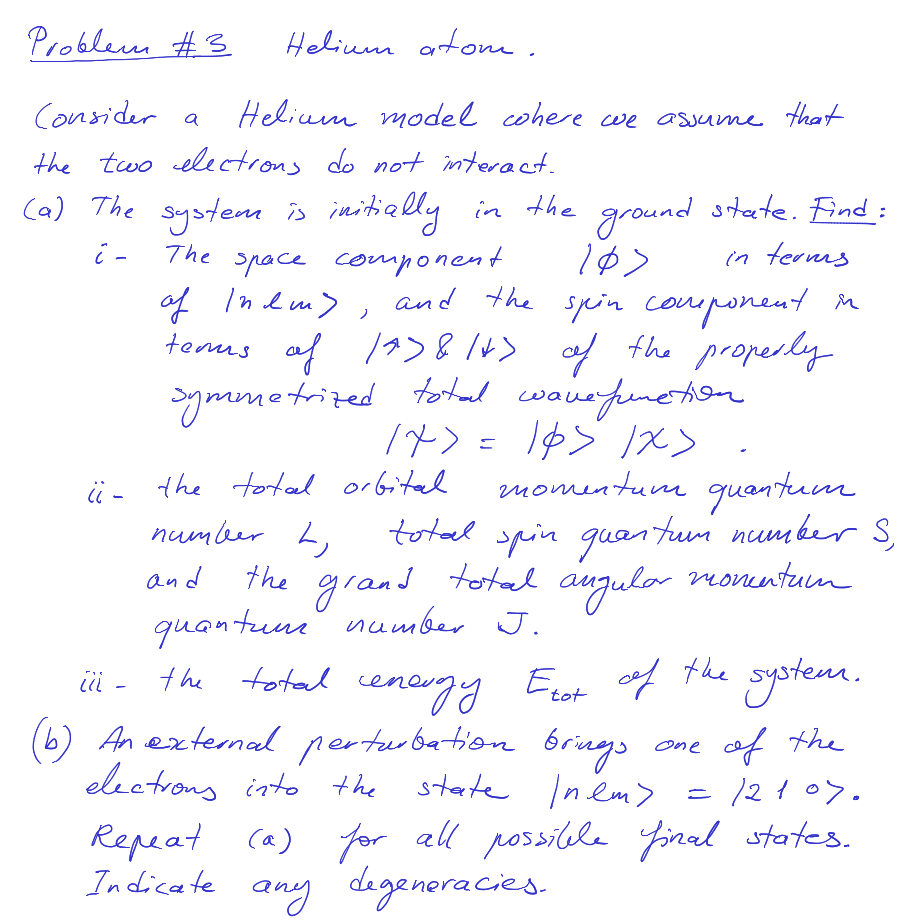 Problem #3 Helium atom.
Consider a Helium model where we assume that
the two electrons do not interact.
(a) The system is initially in the ground state. Find:
i- The space component |ϕ> in terms
of |n l m>, and the spin component in
terms of |↑> & |↓> of the properly
symmetrized total wavefunction
|ψ> = |ϕ> |χ> .
ii- the total orbital momentum quantum
number L, total spin quantum number S,
and the grand total angular momentum
quantum number J.
iii- the total energy E_tot of the system.
(b) An external perturbation brings one of the
electrons into the state |n l m> = |2 1 0>.
Repeat (a) for all possible final states.
Indicate any degeneracies.